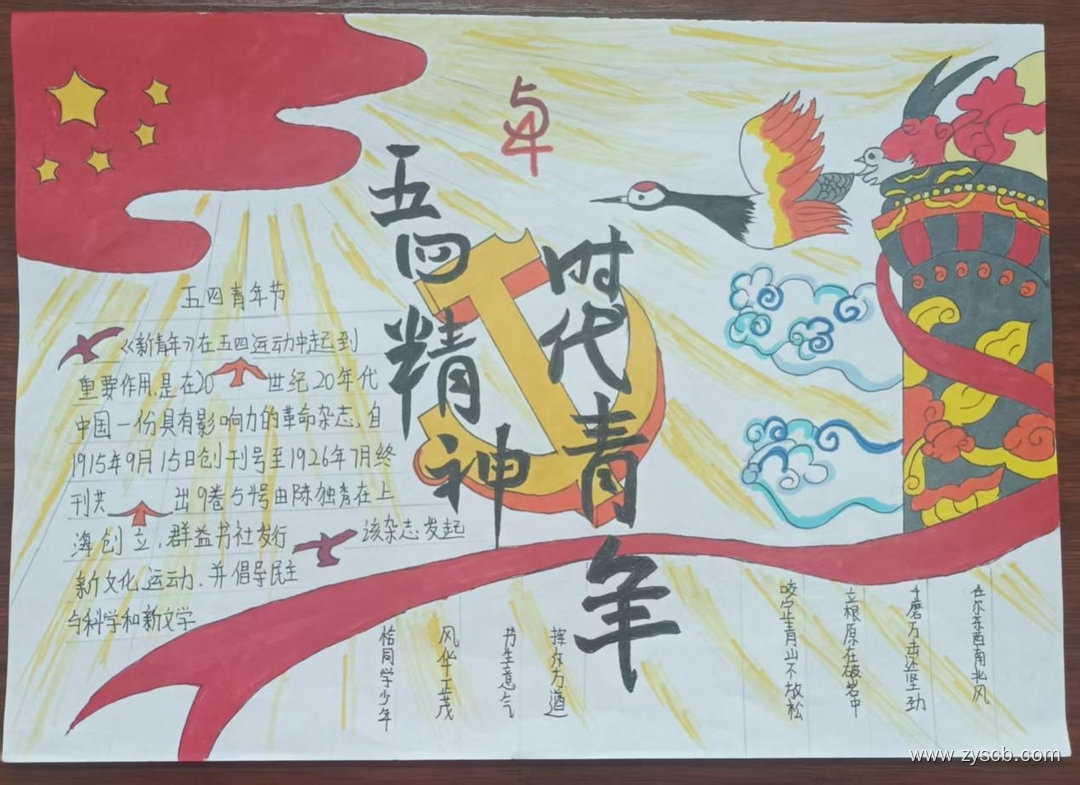 五四
五四精神
时代青年
五四青年节
《新青年》在五四运动中起到
重要作用,是在20世纪20年代
中国一份具有影响力的革命杂志,自
1915年9月15日创刊号至1926年7月终
刊共出9卷54号由陈独秀在上
海创立,群益书社发行 该杂志发起
新文化运动,并倡导民主
与科学和新文学
恰同学少年
风华正茂
书生意气
挥斥方遒
咬定青山不放松
立根原在破岩中
千磨万击还坚劲
任尔东西南北风
www.zyscb.com